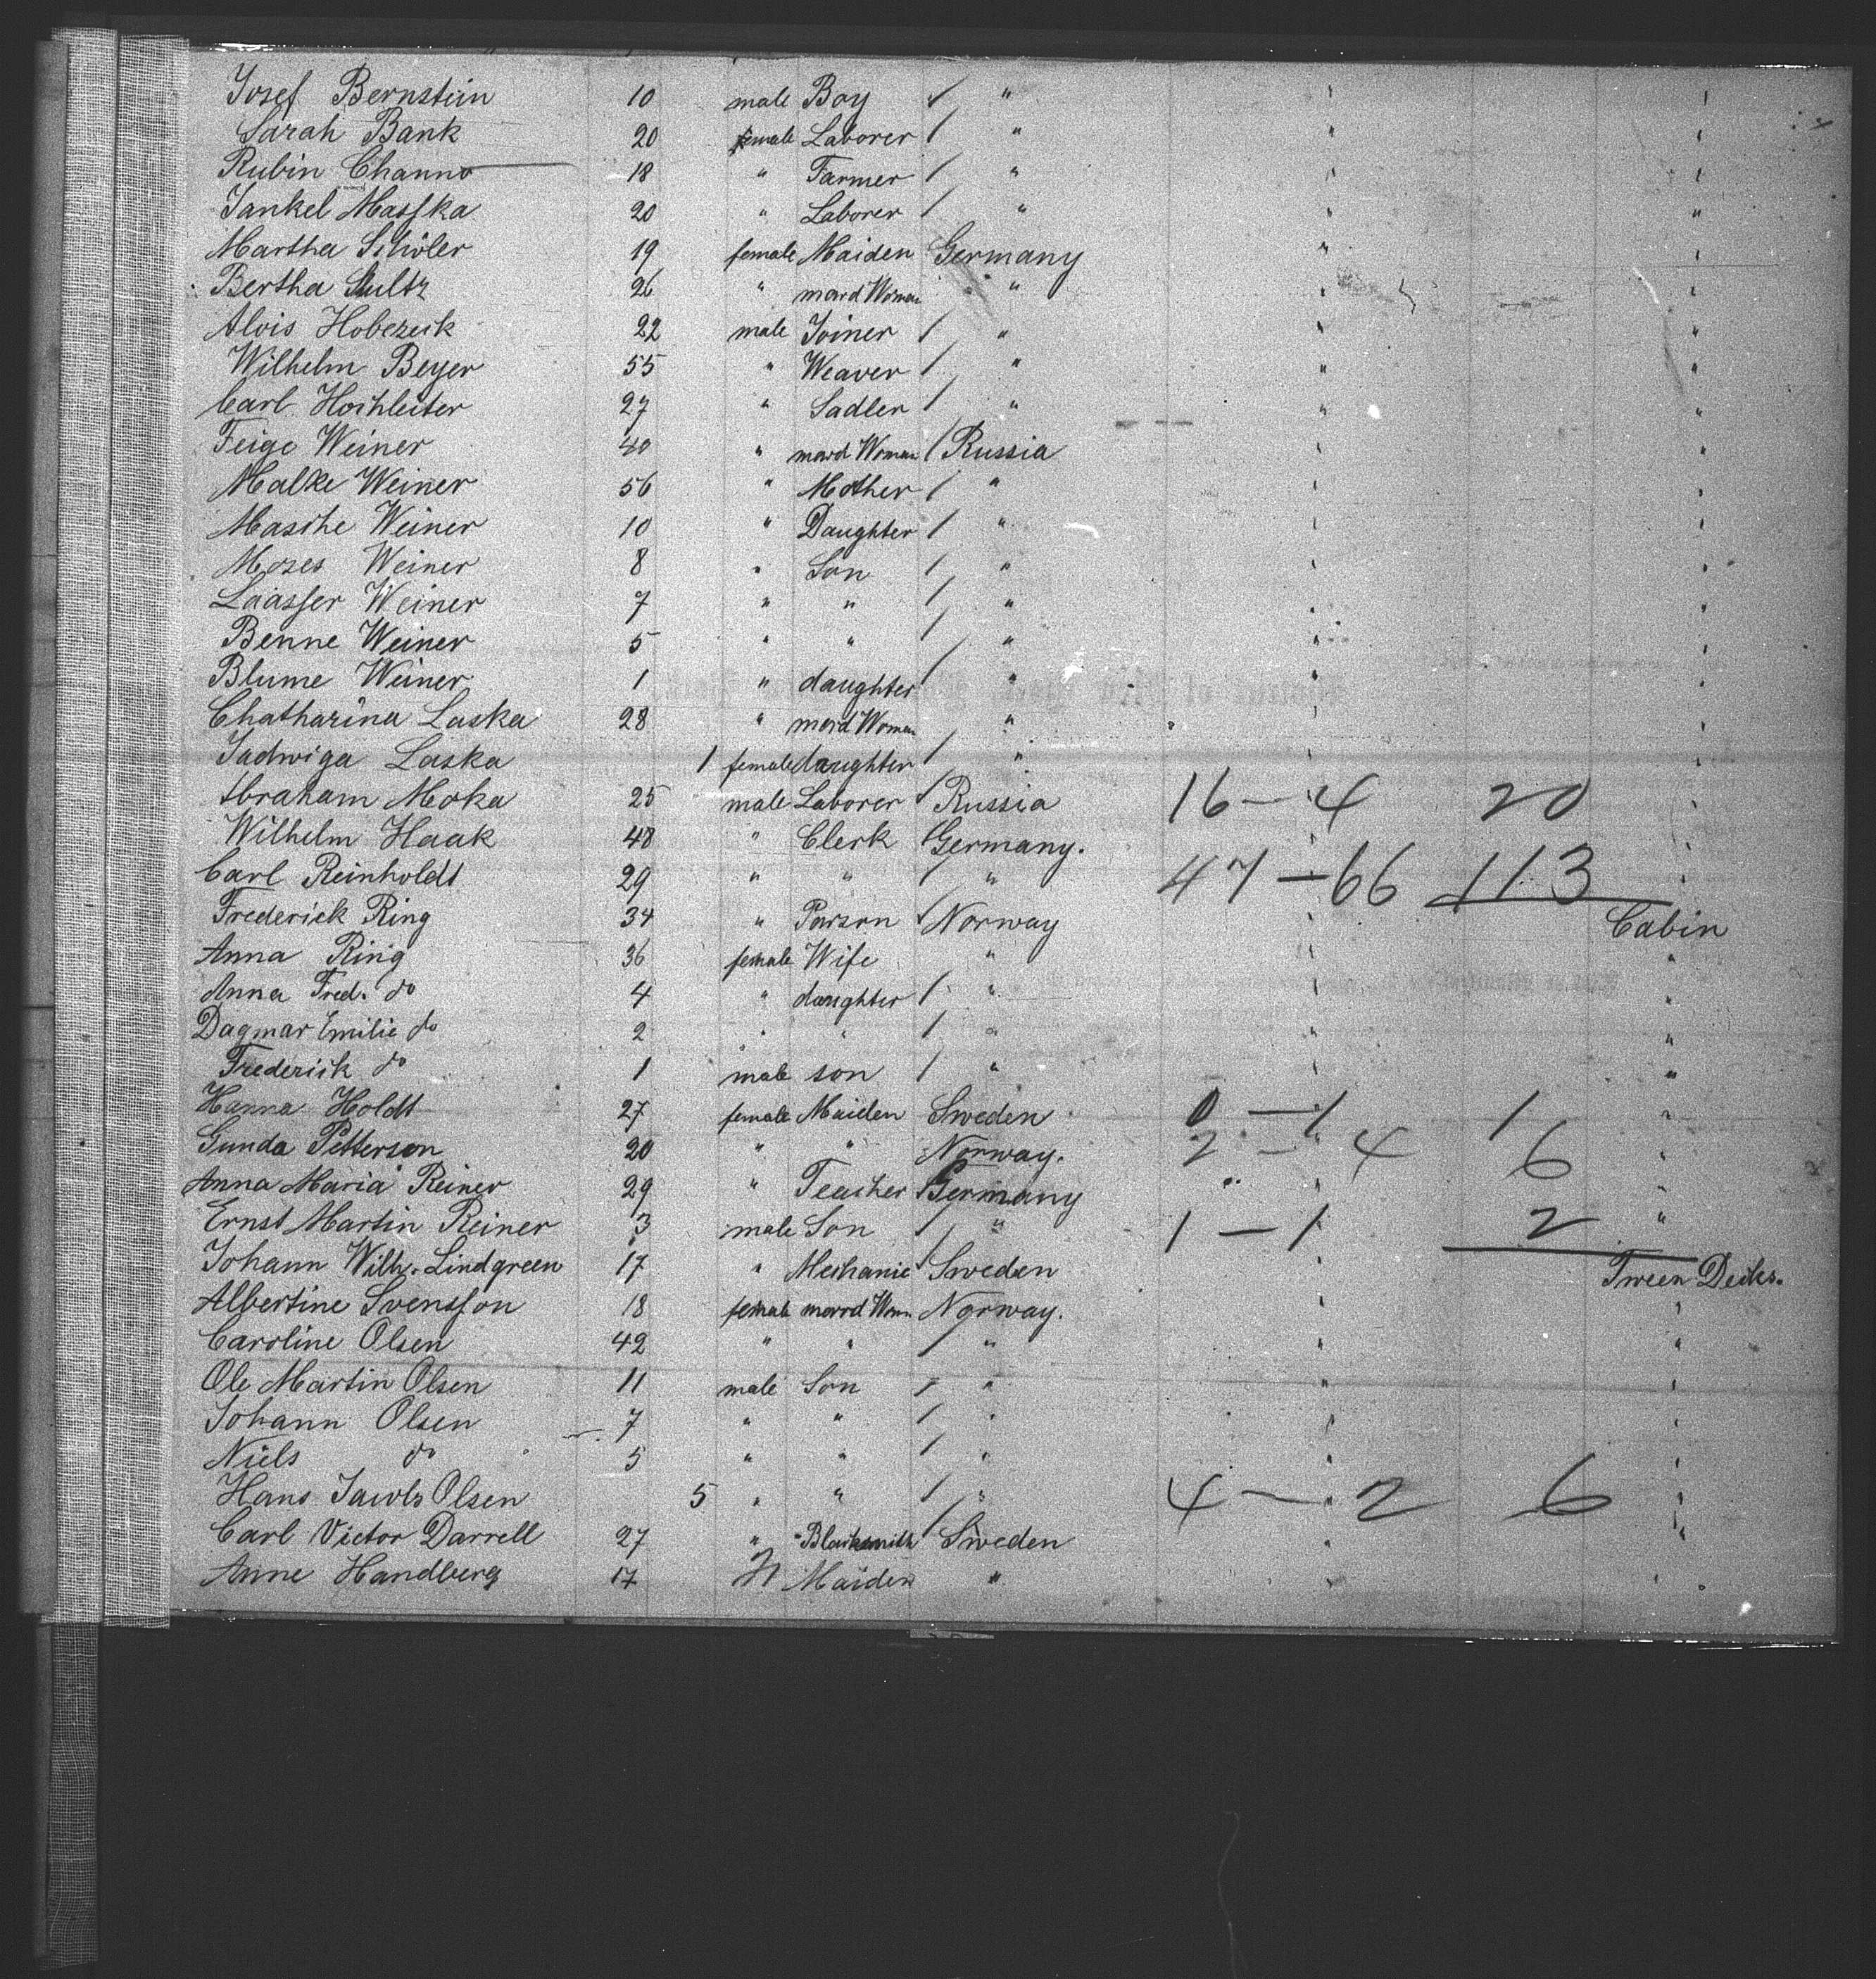 Josef Bernstein 10 male Boy / "
Sarah Bank 20 female Laborer / "
Rubin Channo 18 " Farmer / "
Jankel Masska 20 " Laborer / "
Martha Schöler 19 female Maiden Germany "
Bertha Sultz 26 " mard Woman " "
Alois Hobezeck 22 male Joiner / " "
Wilhelm Beyer 55 " Weaver / " "
Carl Hochleiter 27 " Sadler / " "
Feige Weiner 40 " mard Woman / Russia
Malke Weiner 56 " Mother / "
Masche Weiner 10 " Daughter / "
Moses Weiner 8 " Son / "
Laasser Weiner 7 " " / "
Benne Weiner 5 " " / "
Blume Weiner 1 " daughter / "
Chatharina Laska 28 " mard Woman "
Jadwiga Laska 1 female daughter / "
Abraham Moka 25 male Laborer / Russia 16 — 4 20
Wilhelm Haak 48 " Clerk / Germany.
Carl Reinholdt 29 " " / " 47 — 66 113
Frederick Ring 34 " Parson / Norway Cabin
Anna Ring 36 female Wife " "
Anna Fred. do 4 " daughter / " "
Dagmar Emilie do 2 " " / " "
Frederick do 1 male son / " "
Hanna Holdt 27 female Maiden Sweden 0 — 1 1 "
Gunda Petterson 20 " " Norway. 2 — 4 6 "
Anna Maria Reiner 29 " Teacher / Germany "
Ernst Martin Reiner 3 male Son / " 1 — 1 2 "
Johann Wilh. Lindgreen 17 " Mechanic / Sweden Tween Decks.
Albertine Svensson 18 female marrd Wom. Norway. "
Caroline Olsen 42 " " / " "
Ole Martin Olsen 11 male Son / " "
Johann Olsen 7 " " / " "
Niels do 5 " " / " "
Hans Jacob Olsen 5 " " / " 4 — 2 6
Carl Victor Darrell 27 " Blacksmith / Sweden "
Anne Handberg 17 Maiden " "